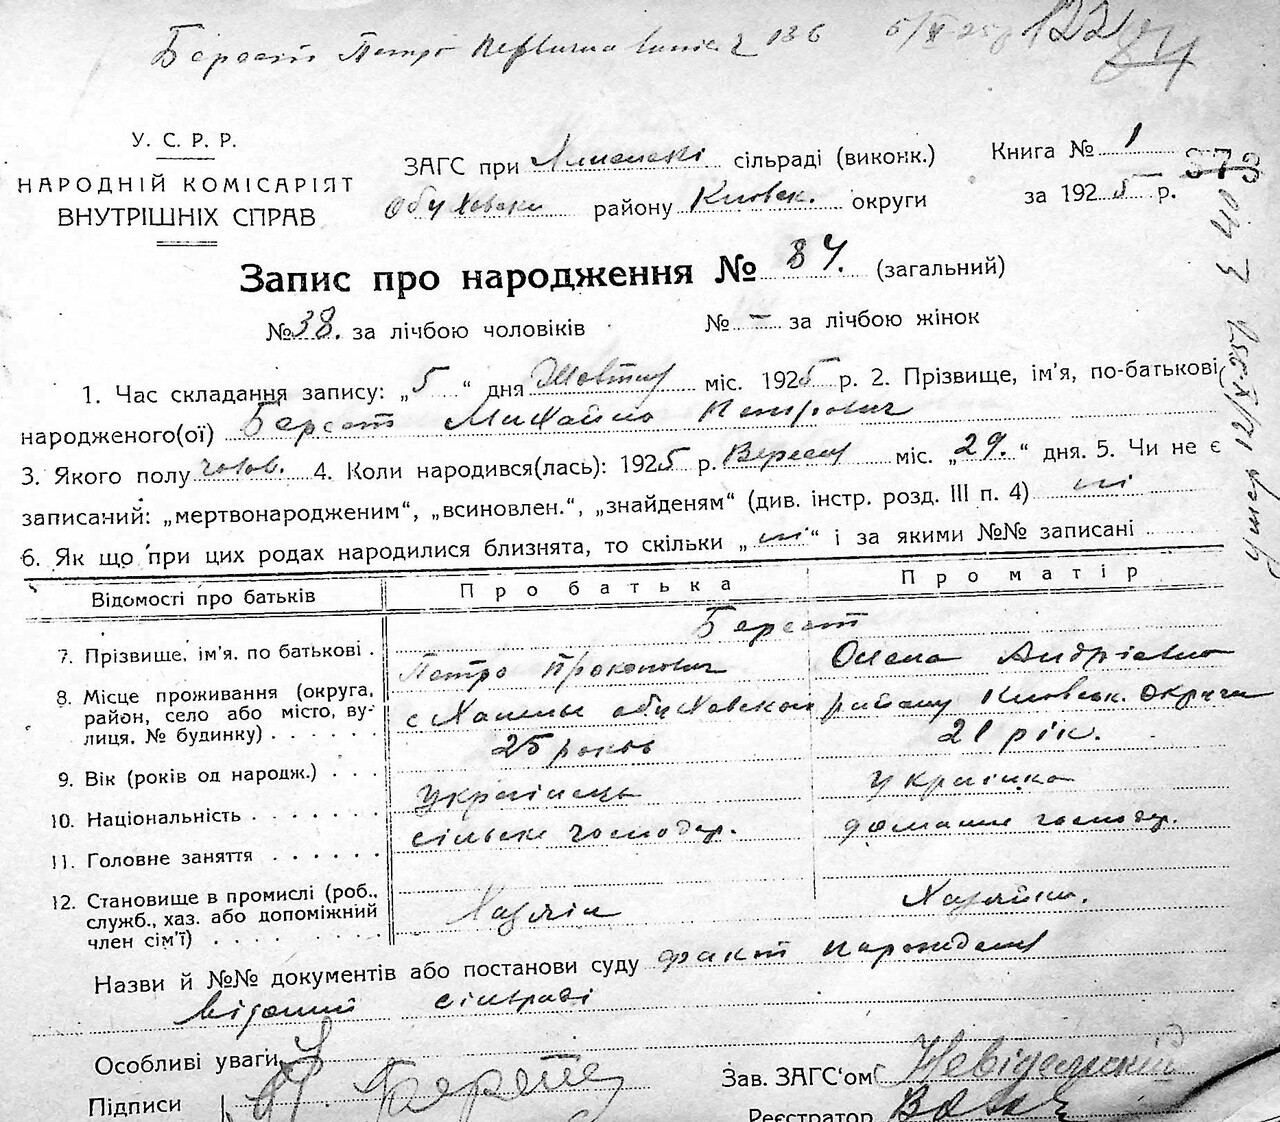 Берест Петро 186 5/XI 25 р 122
84
У. С. Р. Р.
НАРОДНІЙ КОМІСАРІЯТ
ВНУТРІШНІХ СПРАВ
ЗАГС при сільраді (виконк.)
Обуховськ району Київськ. округи
Книга № 1
за 1925 р.
373
Запис про народження № 84. (загальний)
№ 38. за лічбою чоловіків № – за лічбою жінок
1. Час складання запису: „5“ дня Жовтня міс. 1925 р. 2. Прізвище, ім'я, по-батькові
народженого(ої) Берест Михайло Петрович
3. Якого полу чолов. 4. Коли народився(лась): 1925 р. Вересня міс. „29.“ дня. 5. Чи не є
записаний: „мертвонародженим“, „всиновлен.“, „знайденям“ (див. інстр. розд. III п. 4) ні
6. Як що при цих родах народилися близнята, то скільки „ні“ і за якими №№ записані
Відомості про батьків Про батька Про матір
Берест
7. Прізвище, ім'я, по батькові . Петро Прокопович Олена Андріївна
8. Місце проживання (округа, район, село або місто, вулиця, № будинку) . . . . . . с Обуховського району Київськ. Округи
9. Вік (років од народж.) . . . 25 років 21 рік.
10. Національність . . . . . . . Українець Українка
11. Головне заняття . . . . . . сільске господар. домашнє господар.
12. Становище в промислі (роб., служб., хаз. або допоміжний член сім'ї) . . . . Хазяїн Хазяйка.
Назви й №№ документів або постанови суду факт народження
відомий сільраді
Особливі уваги
Підписи П. Берест
Зав. ЗАГС'ом
Реєстратор
Умер 12/XI 25 р З 40